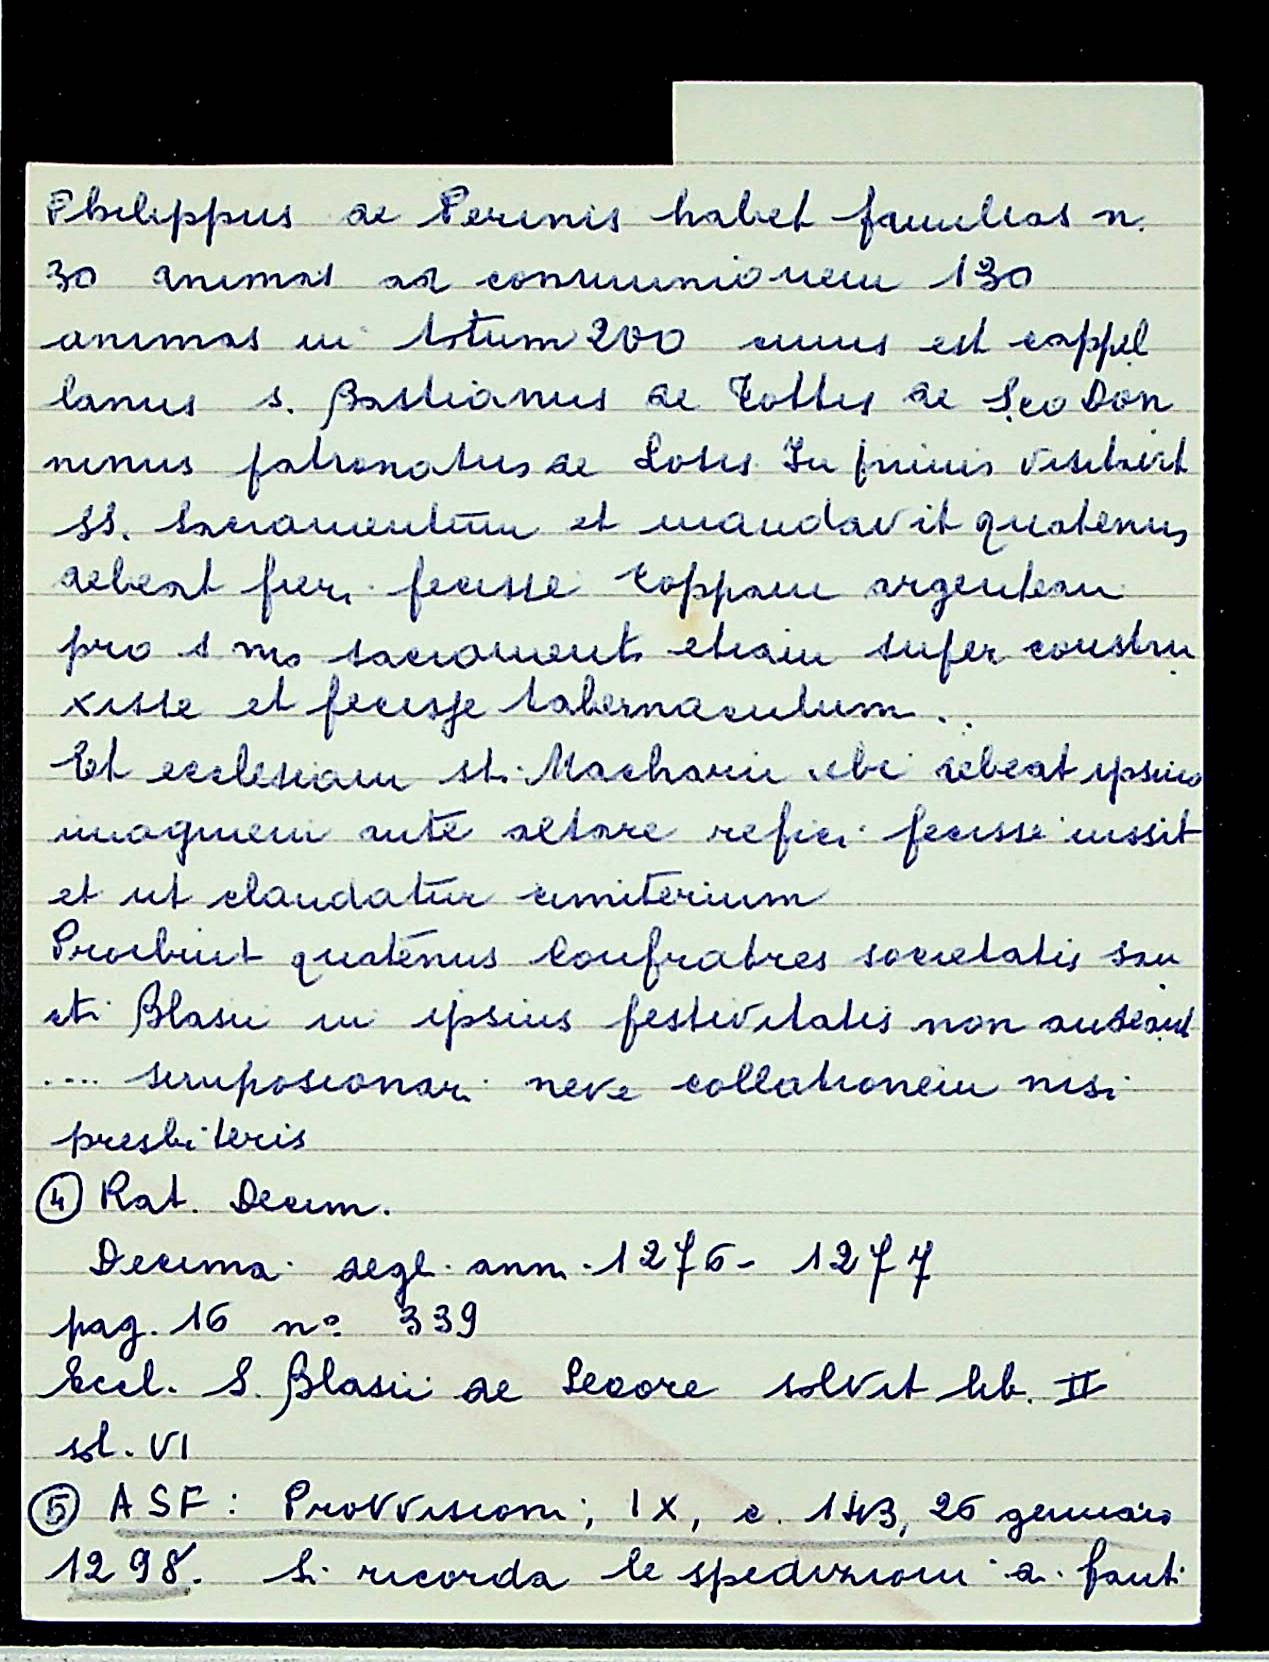 Philippus de Perinis habet familias n.
30 animas ad communionem 130
animas in totum 200 cuius est cappel
lanus s. Bastianus de Tottis de Sco Don
ninus patronatus de Lotis In primis visitavit
SS. Sacramentum et mandavit quatenus
debeat fieri fecisse coppam argenteam
pro s mo sacramento etiam super constru
xisse et fecisse tabernaculum ..
Et ecclesiam sti Macharii ubi debeat ipsius
imaginem ante altare refici fecisse iussit
et ut claudatur cimiterium
Proibuit quatenus Confratres societatis san
cti Blasii in ipsius festivitatis non audeant
.... simposionari neve collationem nisi
presbiteris
④ Rat. Decim.
Decima degli anni 1276-1277
pag. 16 n° 339
Eccl. S. Blasii de Secore solvit lib. II
sol. VI
⑤ ASF: Provvisioni, IX, c. 143, 26 gennaio
1298. Si ricorda le spedizioni di fanti